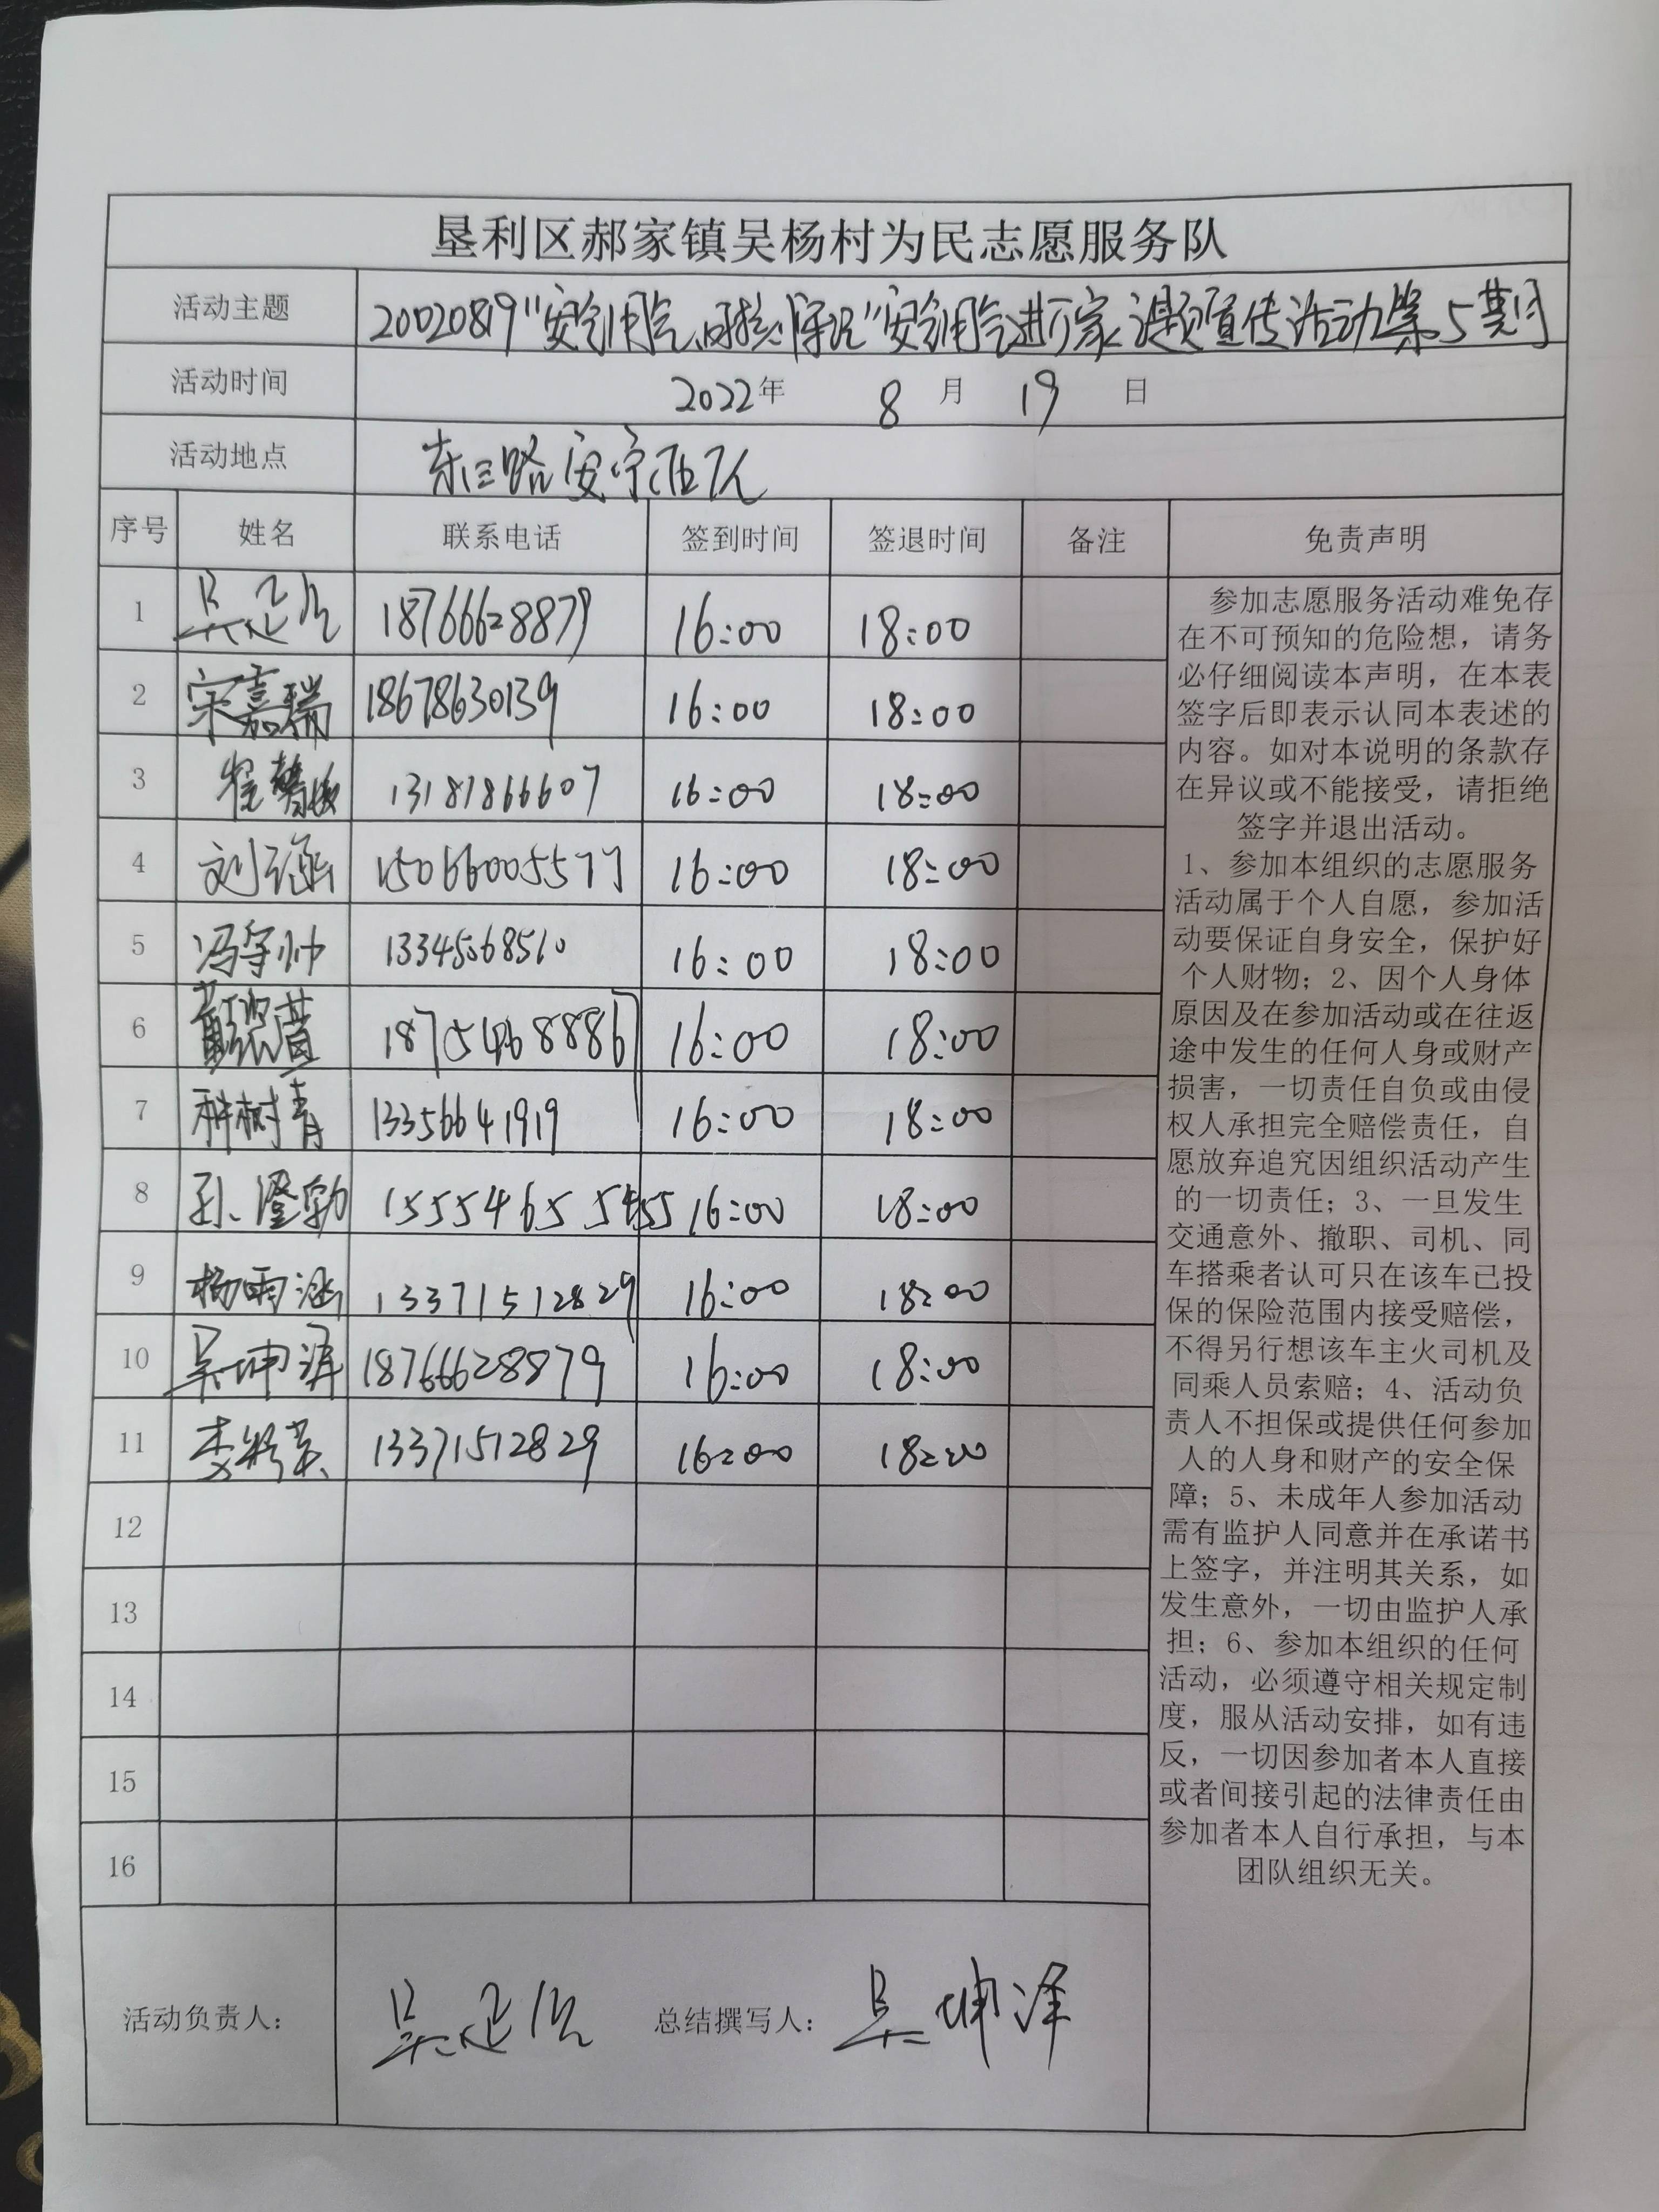 垦利区郝家镇吴杨村为民志愿服务队
活动主题 20020819"安全用气、 "安全用气进万家 主题宣传活动第5期
活动时间 2022年 8 月 19 日
活动地点 东三路安宁
序号 姓名 联系电话 签到时间 签退时间 备注 免责声明
1 吴 18766628879 16:00 18:00
2 宋嘉瑞 18678630139 16:00 18:00
3 崔馨 13181866607 16:00 18:00
4 刘 15066005577 16:00 18:00
5 冯守帅 13345068510 16:00 18:00
6 18754688867 16:00 18:00
7 树青 13356641919 16:00 18:00
8 孙澄勃 16:00 18:00
9 杨雨涵 13371512829 16:00 18:00
10 吴坤泽 18766628879 16:00 18:00
11 李 13371512829 16:00 18:00
12
13
14
15
16
参加志愿服务活动难免存
在不可预知的危险想，请务
必仔细阅读本声明，在本表
签字后即表示认同本表述的
内容。如对本说明的条款存
在异议或不能接受，请拒绝
签字并退出活动。
1、参加本组织的志愿服务
活动属于个人自愿，参加活
动要保证自身安全，保护好
个人财物；2、因个人身体
原因及在参加活动或在往返
途中发生的任何人身或财产
损害，一切责任自负或由侵
权人承担完全赔偿责任，自
愿放弃追究因组织活动产生
的一切责任；3、一旦发生
交通意外、撤职、司机、同
车搭乘者认可只在该车已投
保的保险范围内接受赔偿，
不得另行想该车主火司机及
同乘人员索赔；4、活动负
责人不担保或提供任何参加
人的人身和财产的安全保
障；5、未成年人参加活动
需有监护人同意并在承诺书
上签字，并注明其关系，如
发生意外，一切由监护人承
担；6、参加本组织的任何
活动，必须遵守相关规定制
度，服从活动安排，如有违
反，一切因参加者本人直接
或者间接引起的法律责任由
参加者本人自行承担，与本
团队组织无关。
活动负责人： 吴 总结撰写人： 吴坤泽